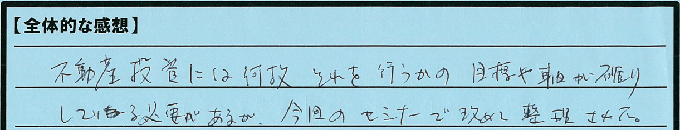 【全体的な感想】
不動産投資には何故それを行うかの目標や軸が確り
している必要があるが、今回のセミナーで改めて整理された。